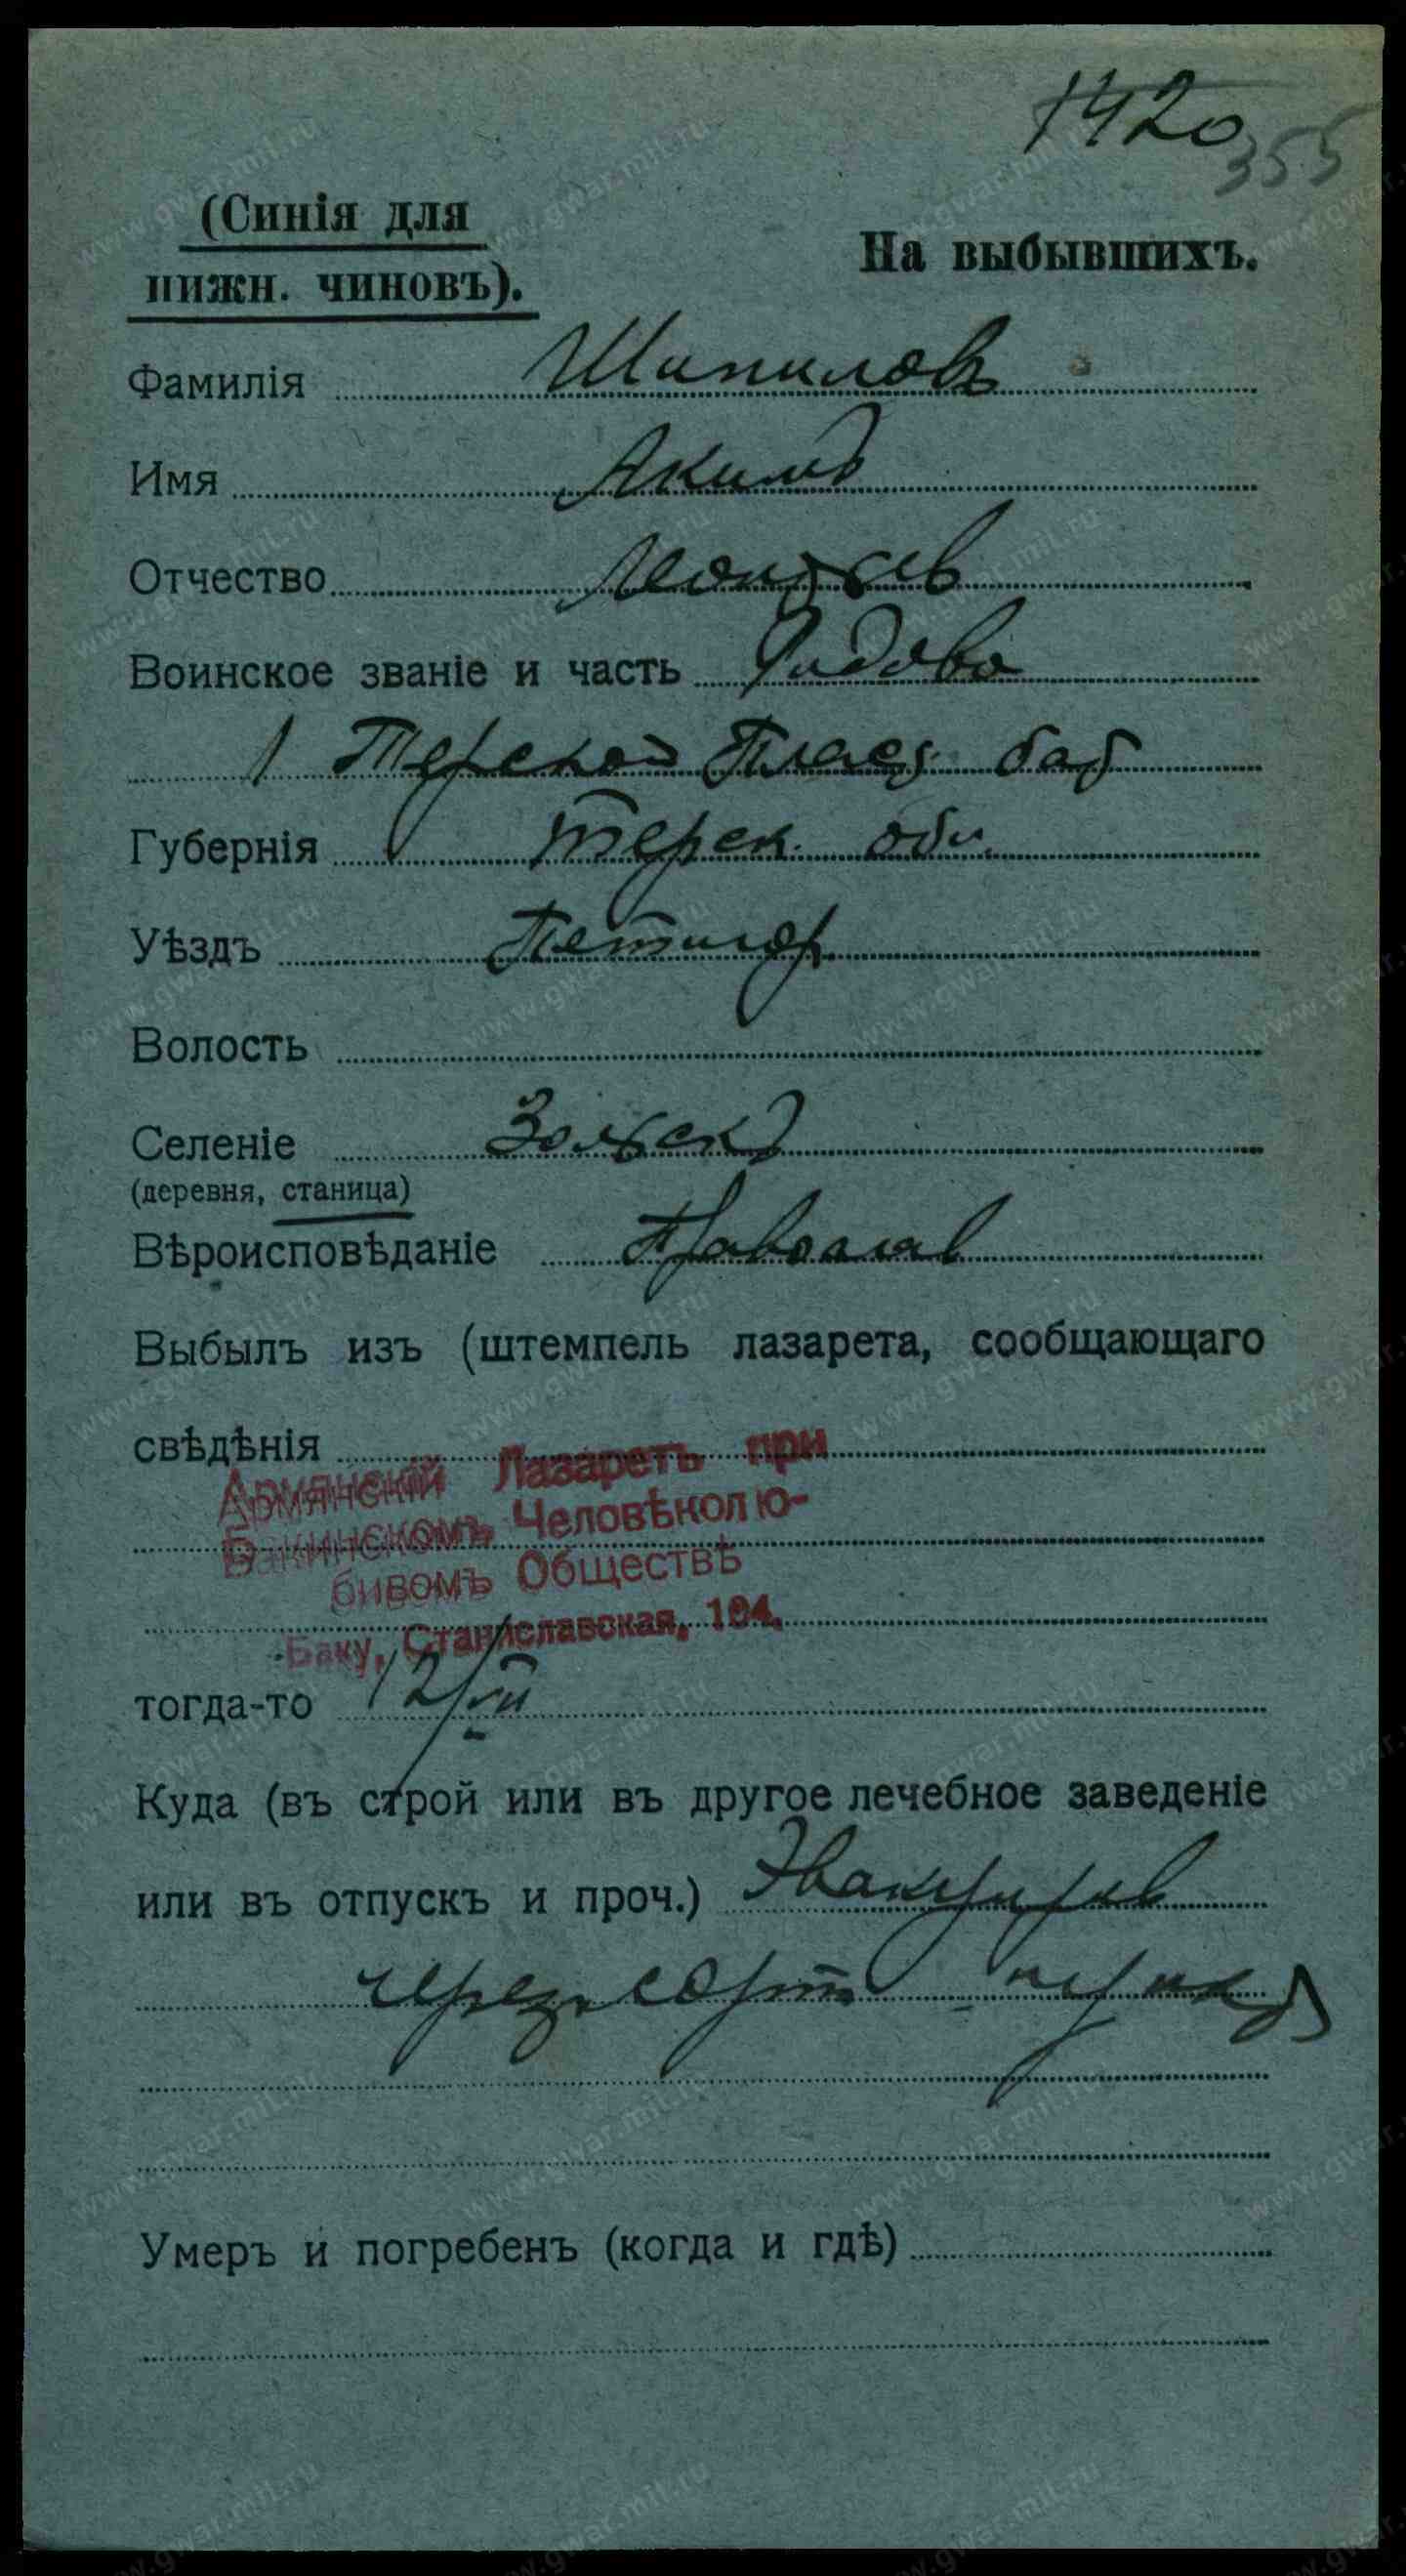 1420
355
(Синія для
нижн. чиновъ).
На выбывшихъ.
Фамилія Шипиловъ
Имя Акимъ
Отчество
Воинское званіе и часть Рядово
1 Терской Пласт бат
Губернія Терск. обл.
Уѣздъ Петигор
Волость
Селеніе Зольскъ
(деревня, станица)
Вѣроисповѣданіе Православ
Выбылъ изъ (штемпель лазарета, сообщающаго
свѣдѣнія
Армянскій Лазаретъ при
Бакинскомъ Человѣколю-
бивомъ Обществѣ
Баку, Станиславская, 194.
тогда-то 12/VII
Куда (въ строй или въ другое лечебное заведеніе
или въ отпускъ и проч.) Эвакуиров
через сорт
Умеръ и погребенъ (когда и гдѣ)